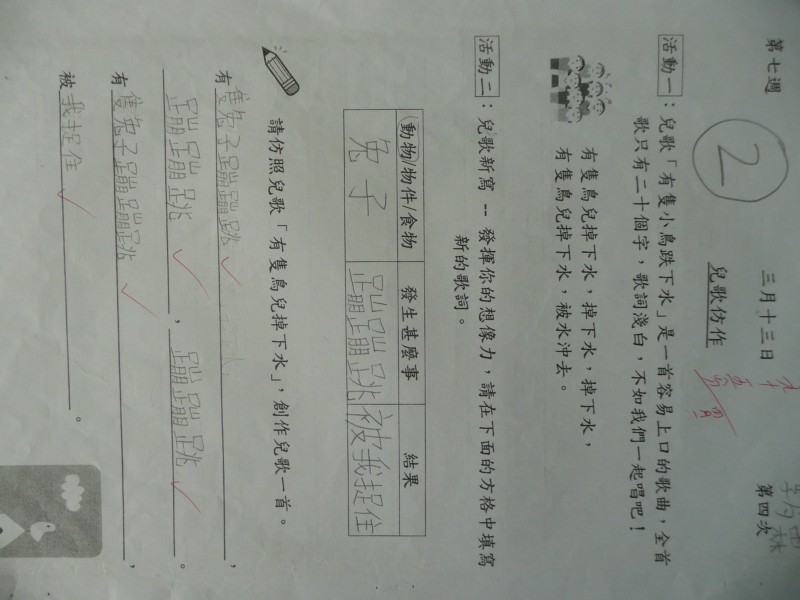 第七週 三月十三日 第四次
2
兒歌仿作
活動一：兒歌「有隻小鳥跌下水」是一首容易上口的歌曲，全首
歌只有二十個字，歌詞淺白，不如我們一起唱吧！
有隻鳥兒掉下水，掉下水，掉下水，
有隻鳥兒掉下水，被水沖去。
活動二：兒歌新寫 -- 發揮你的想像力，請在下面的方格中填寫
新的歌詞。
(動物/物件/食物 發生甚麼事 結果
兔子 蹦蹦跳 被我捉住
請仿照兒歌「有隻鳥兒掉下水」，創作兒歌一首。
有隻兔子蹦蹦跳，
蹦蹦跳，蹦蹦跳。
有隻兔子蹦蹦跳，
被我捉住。